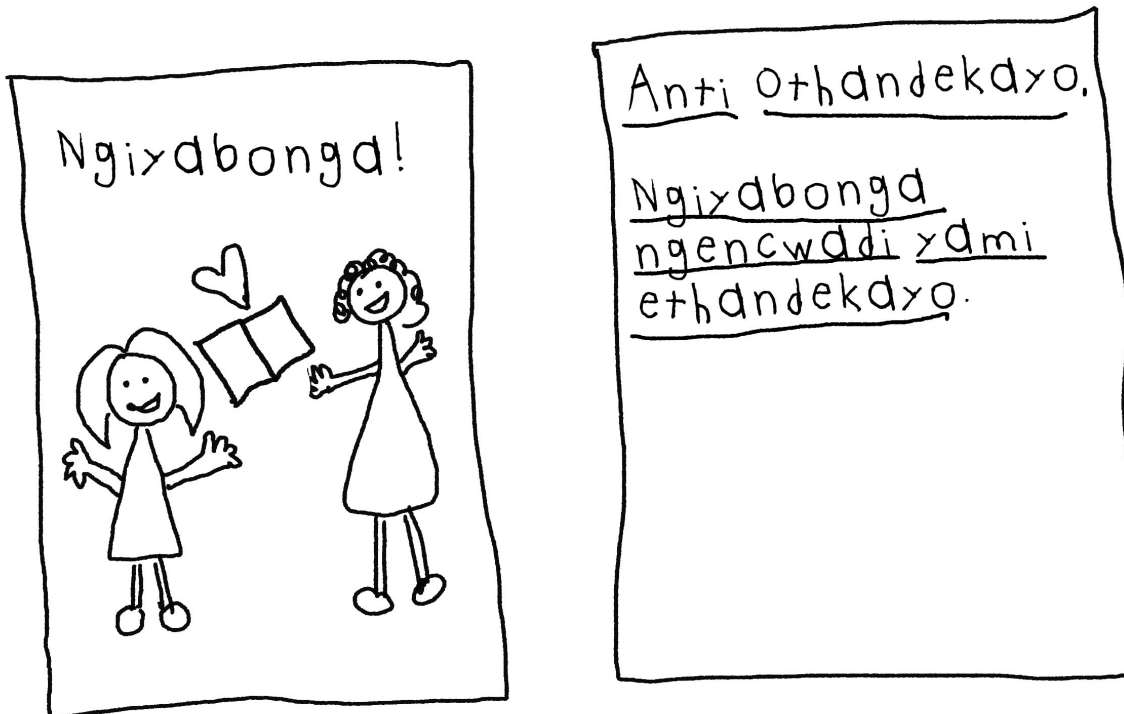 Ngiyabonga!
Anti Othandekayo,
Ngiyabonga
ngencwadi yami
ethandekayo.